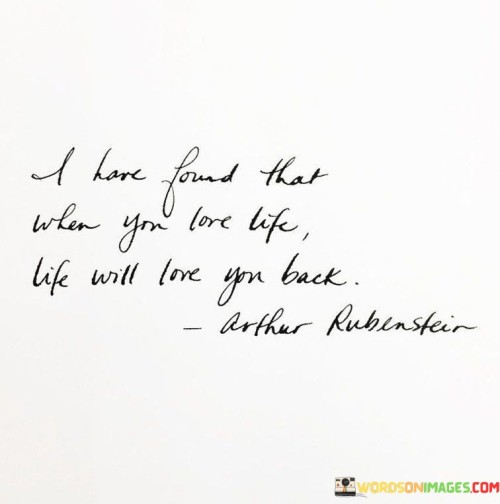 I have found that
when you love life,
life will love you back.
- Arthur Rubenstein
WORDSONIMAGES.COM